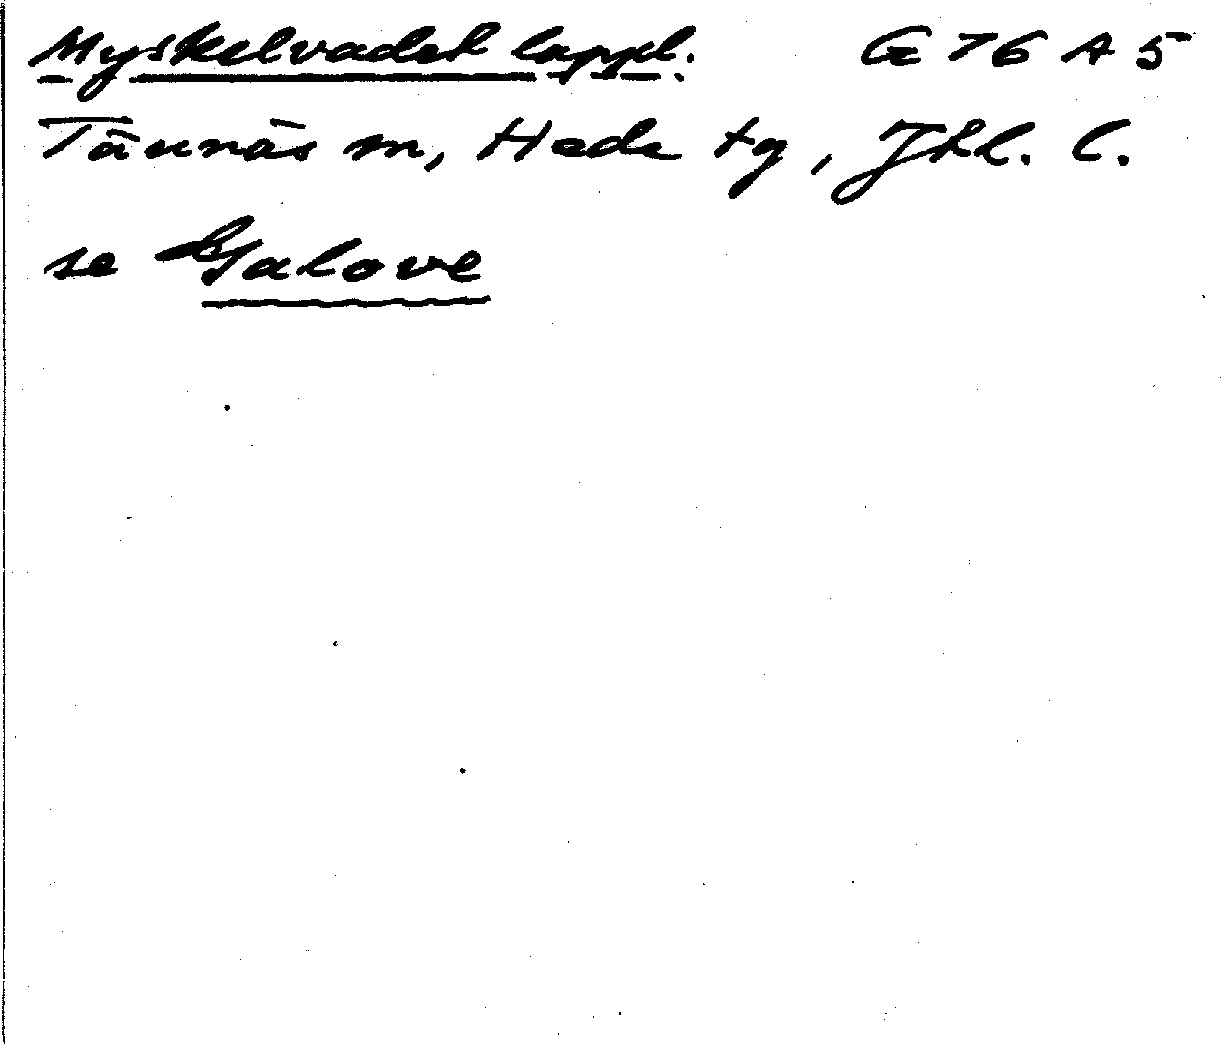 Myskelvadet lappl. G 76 A 5
Tännäs sn, Hede tg, Jtl. l.
se Galove